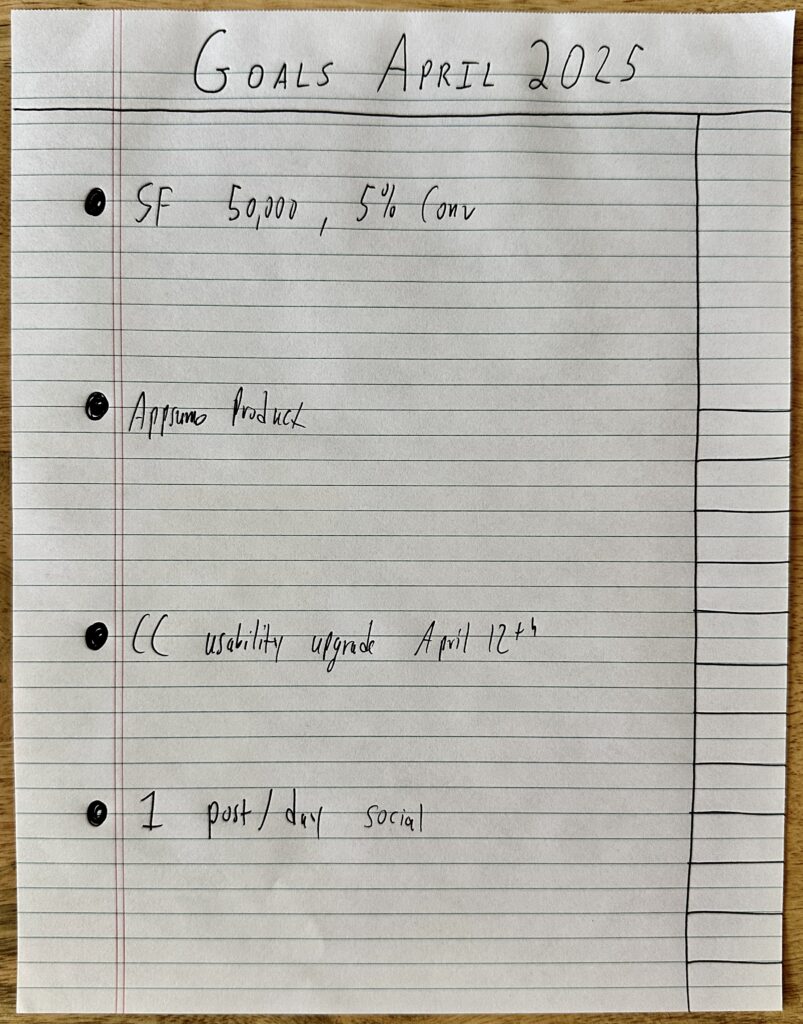 GOALS APRIL 2025
SF 50,000, 5% Conv
Appsumo Product
CC usability upgrade April 12th
1 post/day social